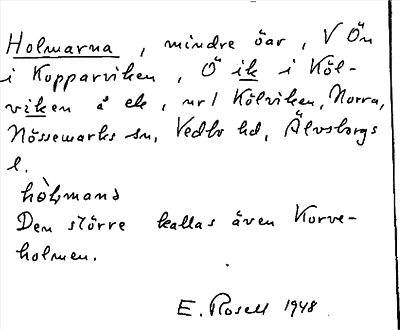 Holmarna, mindre öar, V Ön
i Kopparviken, Ö ik i Köl-
viken å ek, nr 1 Kölviken, Norra,
Nössemarks sn, Vedbo hd, Älvsborgs
l.
hòlmanạ
Den större kallas även Korve-
holmen.
E. Rosell 1948